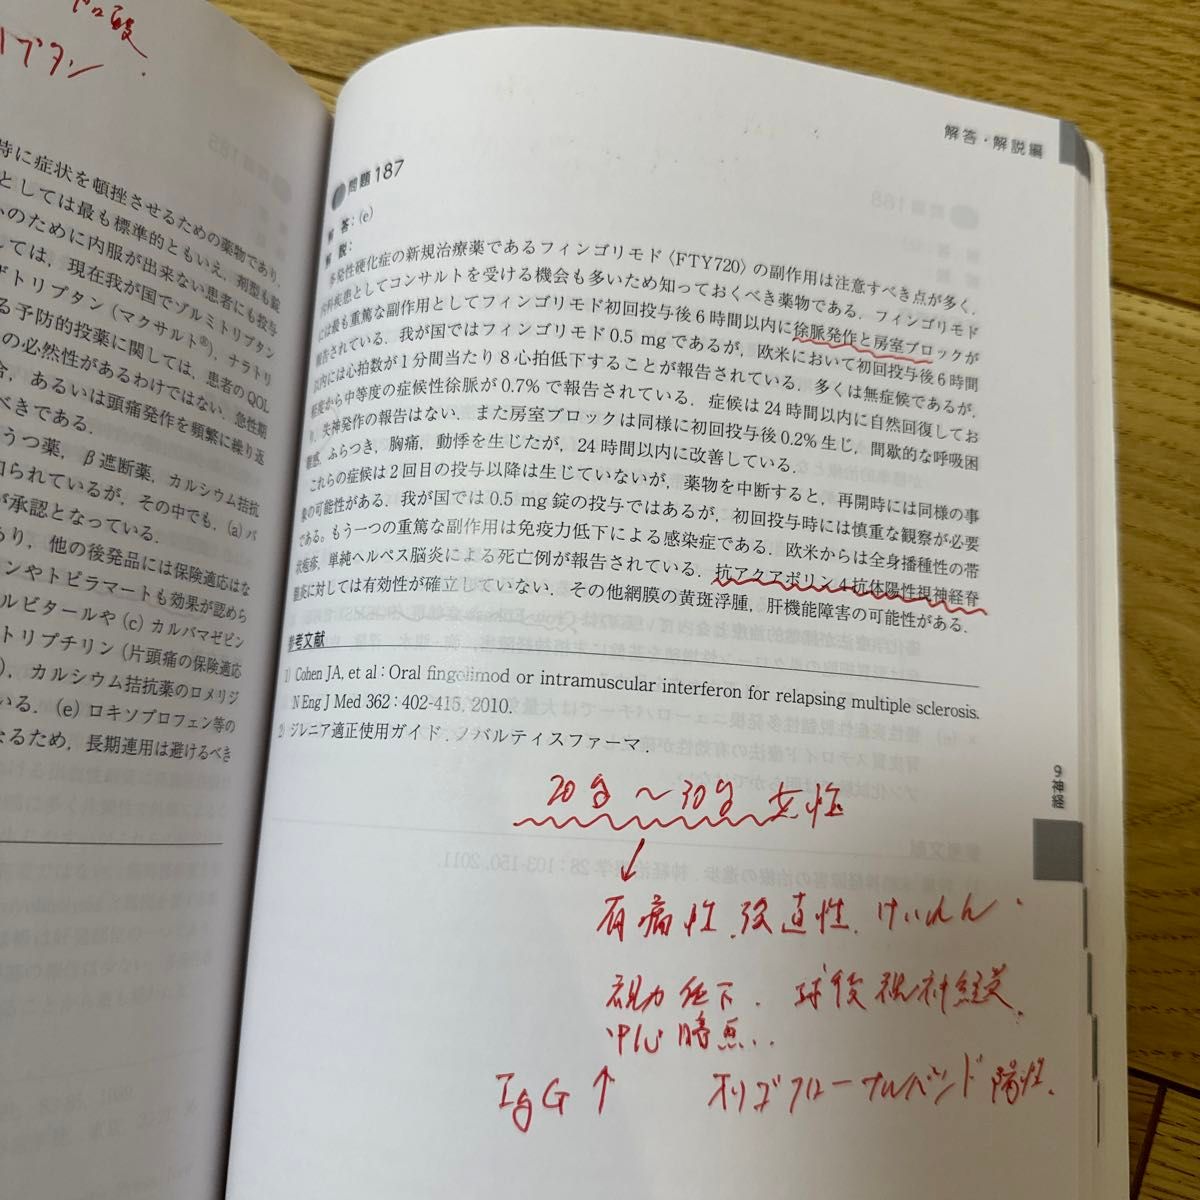 ロ酸
トリプタン
特に症状を頓挫させるための薬物であり,
としては最も標準的ともいえ, 剤型も錠
のために内服が出来ない患者にも投与
しては, 現在我が国でゾルミトリプタン
トリプタン (マクサルト®), ナラトリ
る予防的投薬に関しては, 患者のQOL
の必然性があるわけではない. 急性期
あるいは頭痛発作を頻繁に繰り返
べきである.
うつ薬, β遮断薬, カルシウム拮抗
知られているが, その中でも, (a) バ
が承認となっている.
あり, 他の後発品には保険適応はな
ンやトピラマートも効果が認めら
ルビタールや (c) カルバマゼピン
トリプチリン (片頭痛の保険適応
), カルシウム拮抗薬のロメリジ
いる. (e) ロキソプロフェン等の
なるため, 長期連用は避けるべき
解答・解説編
問題 187
解 答: (e)
解 説:
多発性硬化症の新規治療薬であるフィンゴリモド〈FTY720〉の副作用は注意すべき点が多く,
内科疾患としてコンサルトを受ける機会も多いため知っておくべき薬物である. フィンゴリモド
には最も重篤な副作用としてフィンゴリモド初回投与後6時間以内に徐脈発作と房室ブロックが
報告されている. 我が国ではフィンゴリモド0.5 mgであるが, 欧米において初回投与後6時間
以内には心拍数が1分間当たり8心拍低下することが報告されている. 多くは無症候であるが,
軽度から中等度の症候性徐脈が0.7%で報告されている. 症候は24時間以内に自然回復してお
り, 失神発作の報告はない. また房室ブロックは同様に初回投与後0.2%生じ, 間歇的な呼吸困
難感, ふらつき, 胸痛, 動悸を生じたが, 24時間以内に改善している.
これらの症候は2回目の投与以降は生じていないが, 薬物を中断すると, 再開時には同様の事
象の可能性がある. 我が国では0.5 mg錠の投与ではあるが, 初回投与時には慎重な観察が必要
である. もう一つの重篤な副作用は免疫力低下による感染症である. 欧米からは全身播種性の帯
状疱疹, 単純ヘルペス脳炎による死亡例が報告されている. 抗アクアポリン4抗体陽性視神経脊
髄炎に対しては有効性が確立していない. その他網膜の黄斑浮腫, 肝機能障害の可能性がある.
参考文献
1) Cohen JA, et al : Oral fingolimod or intramuscular interferon for relapsing multiple sclerosis.
N Eng J Med 362 : 402-415, 2010.
2) ジレニア適正使用ガイド. ノバルティスファーマ.
9 神経
20g 〜 30g 女性
↓
有痛性. 強直性. けいれん.
視力低下. 球後視神経炎.
中心暗点..
IgG ↑ オリゴクローナルバンド陽性.